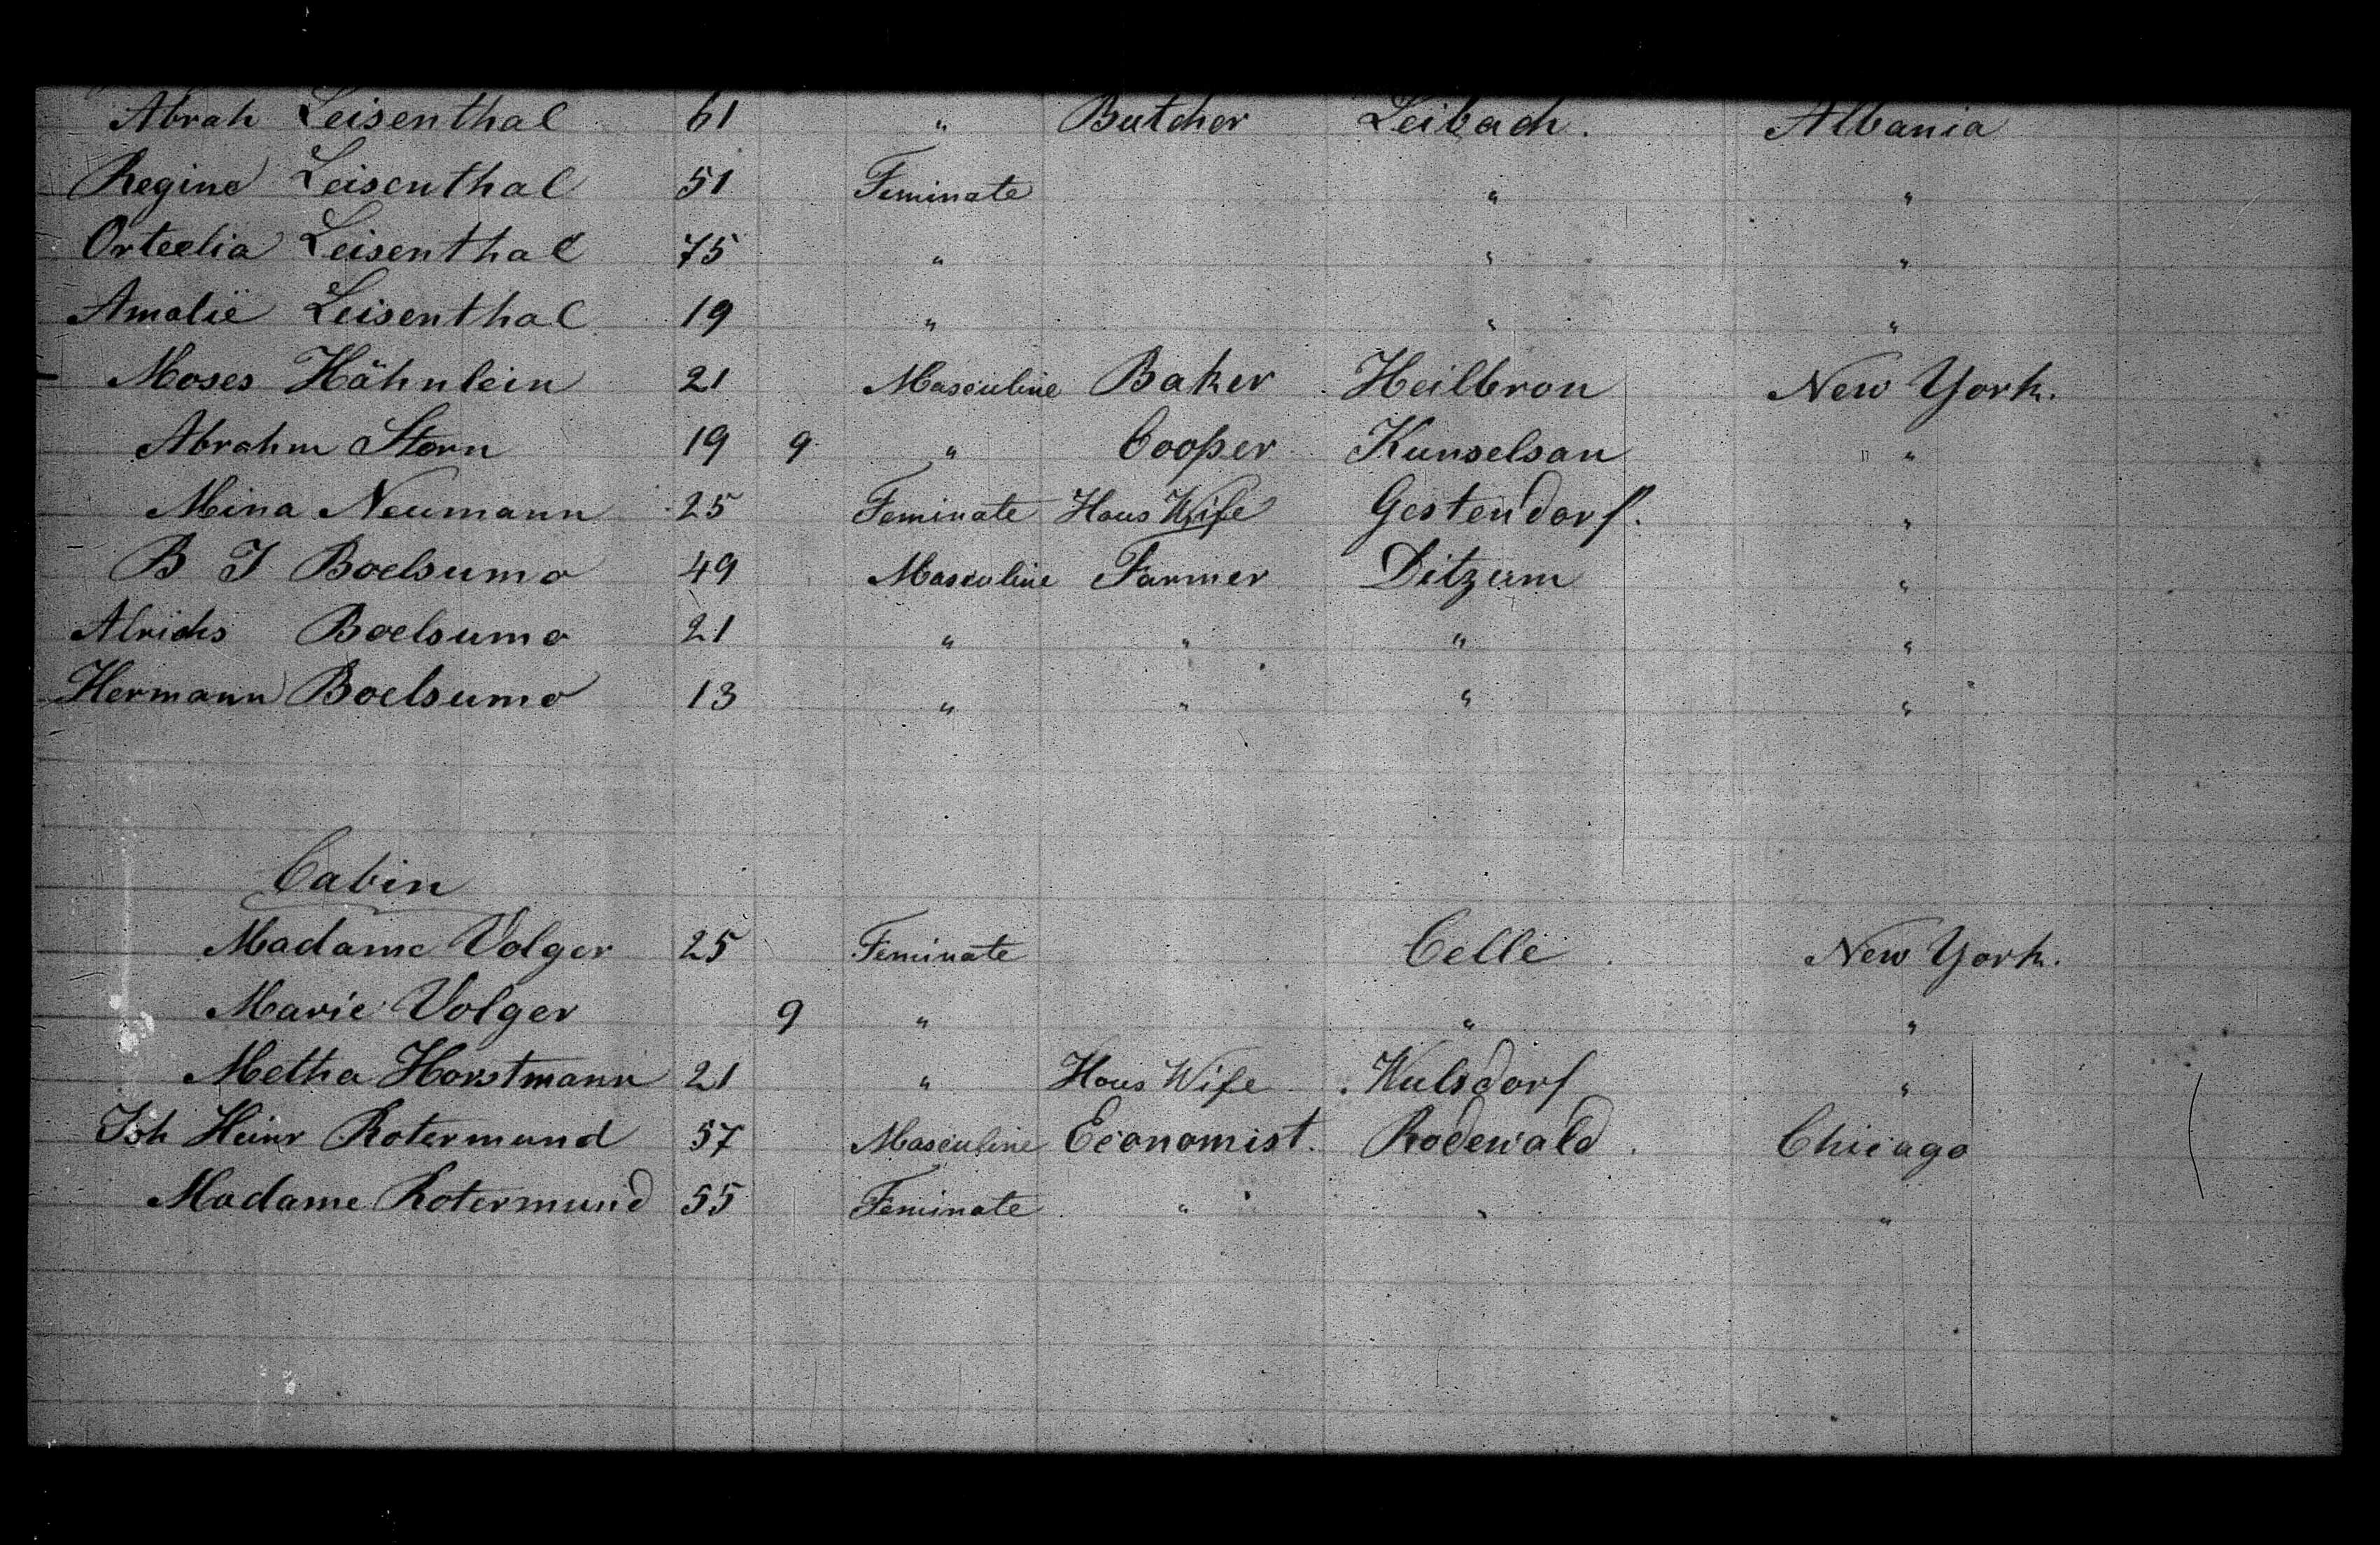 Abrah Leisenthal 61 " Butcher Leibach. Albania
Regine Leisenthal 51 Feminate " "
Orteelia Leisenthal 75 " " "
Amalie Leisenthal 19 " " "
Moses Hähnlein 21 Masculine Baker Heilbron New York.
Abrahm Stern 19 9 " Cooper Kunselsau "
Mina Neumann 25 Feminate Hous Wife Gestendorf. "
B J Boelsuma 49 Masculine Farmer Ditzum "
Alrichs Boelsuma 21 " " " "
Hermann Boelsuma 13 " " " "
Cabin
Madame Volger 25 Feminate Celle New York.
Marie Volger 9 " " "
Metha Horstmann 21 " Hous Wife Wulsdorf "
Joh Heinr Rotermund 57 Masculine Economist. Rodewald Chicago
Madame Rotermund 55 Feminate " " "